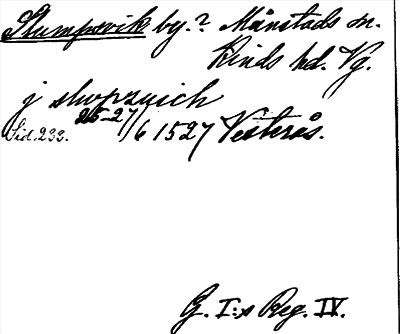 Slumpsvik by.? Månstads sn.
Kinds hd. Vg.
j slwpzuich
Sid. 233. 25-27/6 1527 Vesterås.
G. I:s Reg. IV.